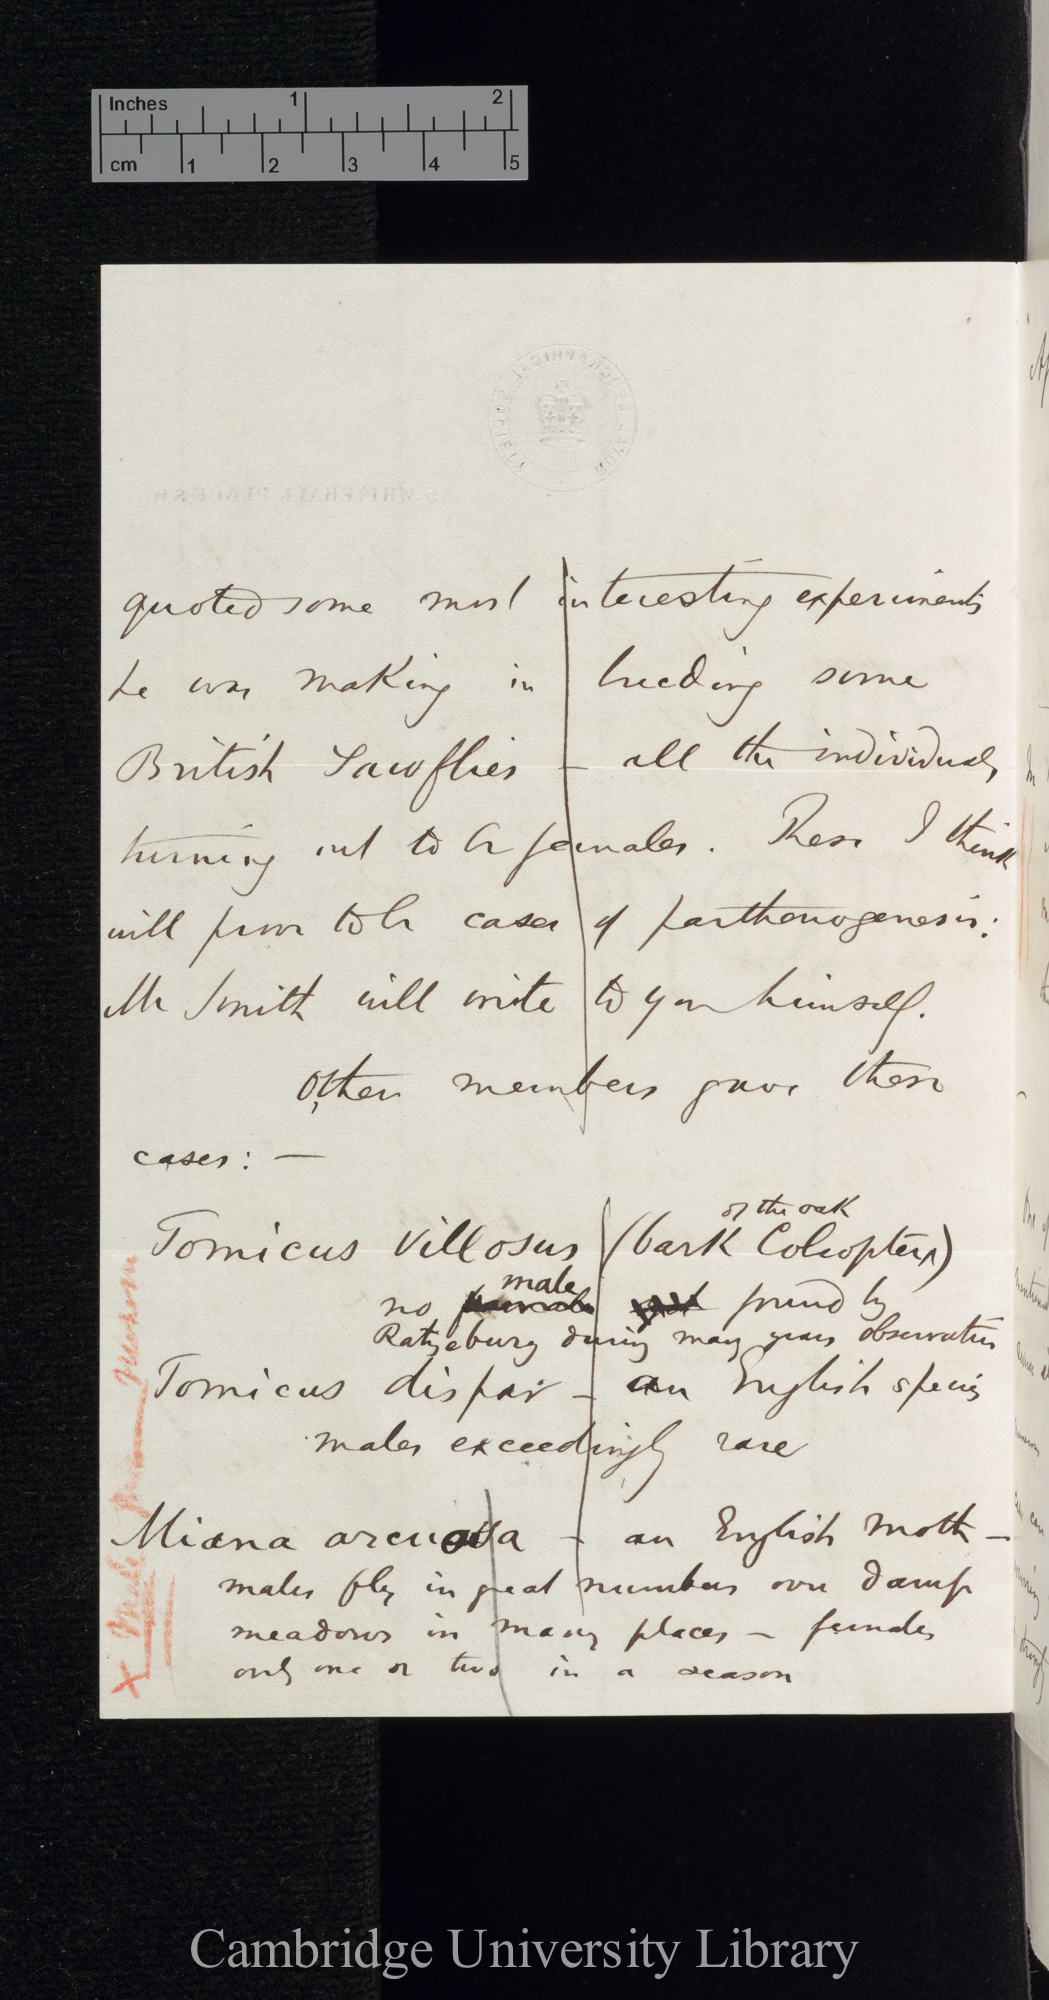 Inches 1 2
cm 1 2 3 4 5
ROYAL GEOGRAPHICAL SOCIETY
15, WHITEHALL PLACE S.W.
quoted some most interesting experiments
he was making in breeding some
British Sawflies – all the individuals
turning out to be females. These I think
will prove to be cases of parthenogenesis:
Mr Smith will write to you himself.
Other members gave these
cases: —
of the oak
Tomicus villosus (bark Coleoptera)
male
no female not found by
Ratzeburg during many years observation
Tomicus dispar – an English species
males exceedingly rare
Miana arcuosa – an English Moth –
males fly in great numbers over damp
meadows in many places – females
only one or two in a season
X Male
Cambridge University Library